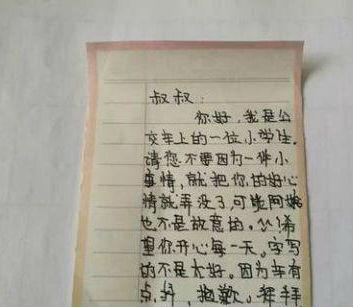 叔叔：
你好，我是公
交车上的一位小学生。
请您不要因为一件小
事情，就把你的好心
情就弄没了，可能阿姨
也不是故意的，必希
望你开心每一天。字写
的不是太好。因为车有
点抖，抱歉。拜拜